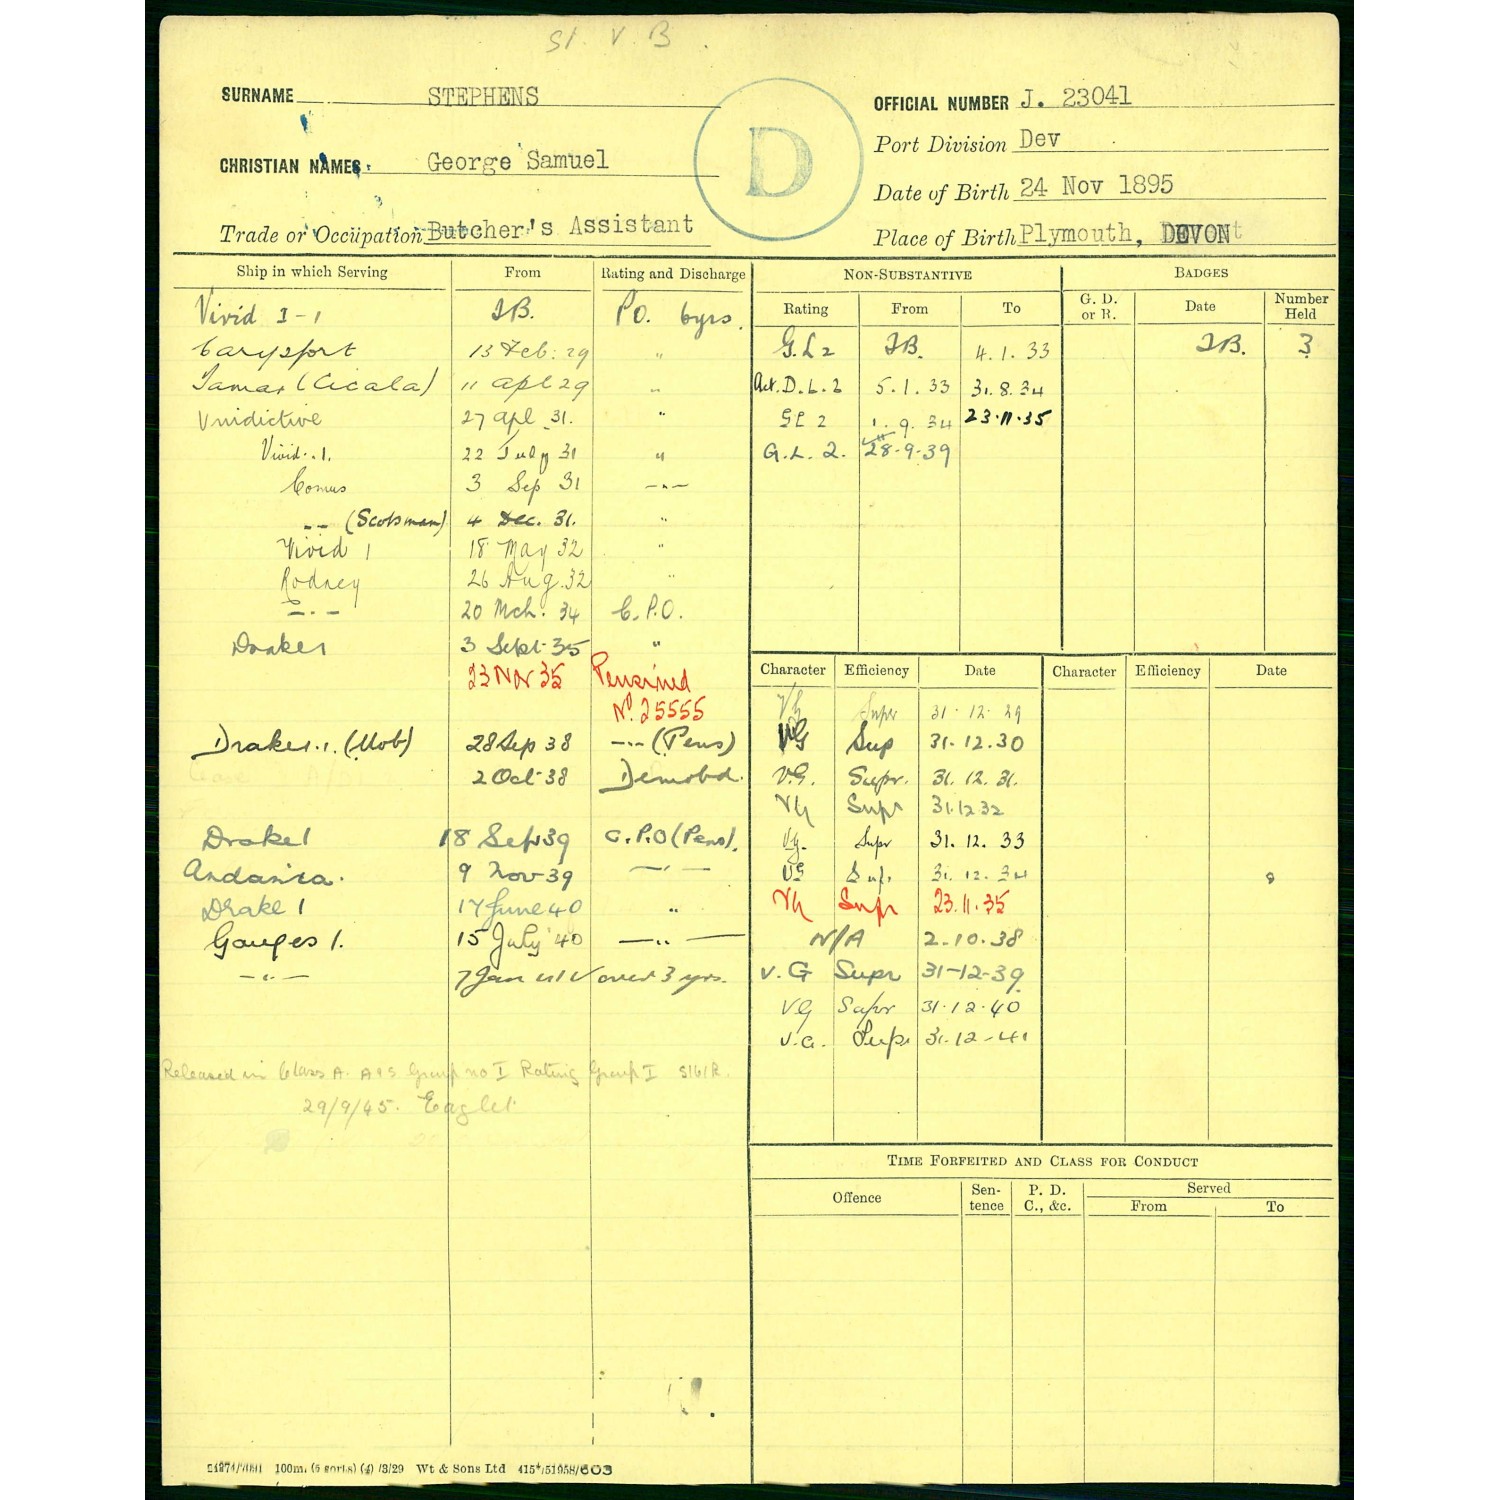 St. V. B.
SURNAME STEPHENS
OFFICIAL NUMBER J. 23041
D
Port Division Dev
CHRISTIAN NAMES. George Samuel
Date of Birth 24 Nov 1895
Trade or Occupation Butcher's Assistant
Place of Birth Plymouth, DEVON
Ship in which Serving From Rating and Discharge
Vivid I-1 JB. PO. 6yrs.
Carysfort 13 Feb: 29 "
Tamar (Cicala) 11 Apl 29 "
Vindictive 27 Apl 31. "
Vivid. 1. 22 July 31 "
Comus 3 Sep 31 -"-
-- (Scotsman) 4 Dec. 31. "
Vivid 1 18 May 32 "
Rodney 26 Aug. 32 "
-"- 20 Mch. 34 C.P.O.
Drake 1 3 Sept 35 "
23 Nov 35 Pensioned
No. 25555
Drake. 1. (Mob) 28 Sep 38 -"- (Pens)
2 Oct 38 Demobd.
Drake 1 18 Sep 39 C.P.O (Pens).
Andania. 9 Nov 39 -"-
Drake 1 17 June 40 "
Ganges 1. 15 July 40 -"-
-"- 7 Jan 41 V over 3 yrs.
Released in Class A. A & S Group no I Rating Group I S161R.
29/9/45. Eaglet
NON-SUBSTANTIVE
Rating From To
G.L 2 JB. 4.1.33
Act. D.L.2 5.1.33 31.8.34
GL 2 1.9.34 23.11.35
G.L.2. 28-9-39
BADGES
G. D. or R. Date Number Held
JB. 3
Character Efficiency Date Character Efficiency Date
VG Supr 31-12-29
VG Sup 31.12.30
V.G. Supr. 31.12.31.
VG Supr 31.12.32
V.G. Supr 31.12.33
VG Sup. 31.12.34
VG Supr 23.11.35
N/A 2-10-38
V.G Supr 31-12-39
VG Supr 31-12-40
V.G. Supr 31-12-41
TIME FORFEITED AND CLASS FOR CONDUCT
Offence Sentence P. D. C., &c. Served
From To
100m. (4) /3/29 Wt & Sons Ltd 415/51958/603